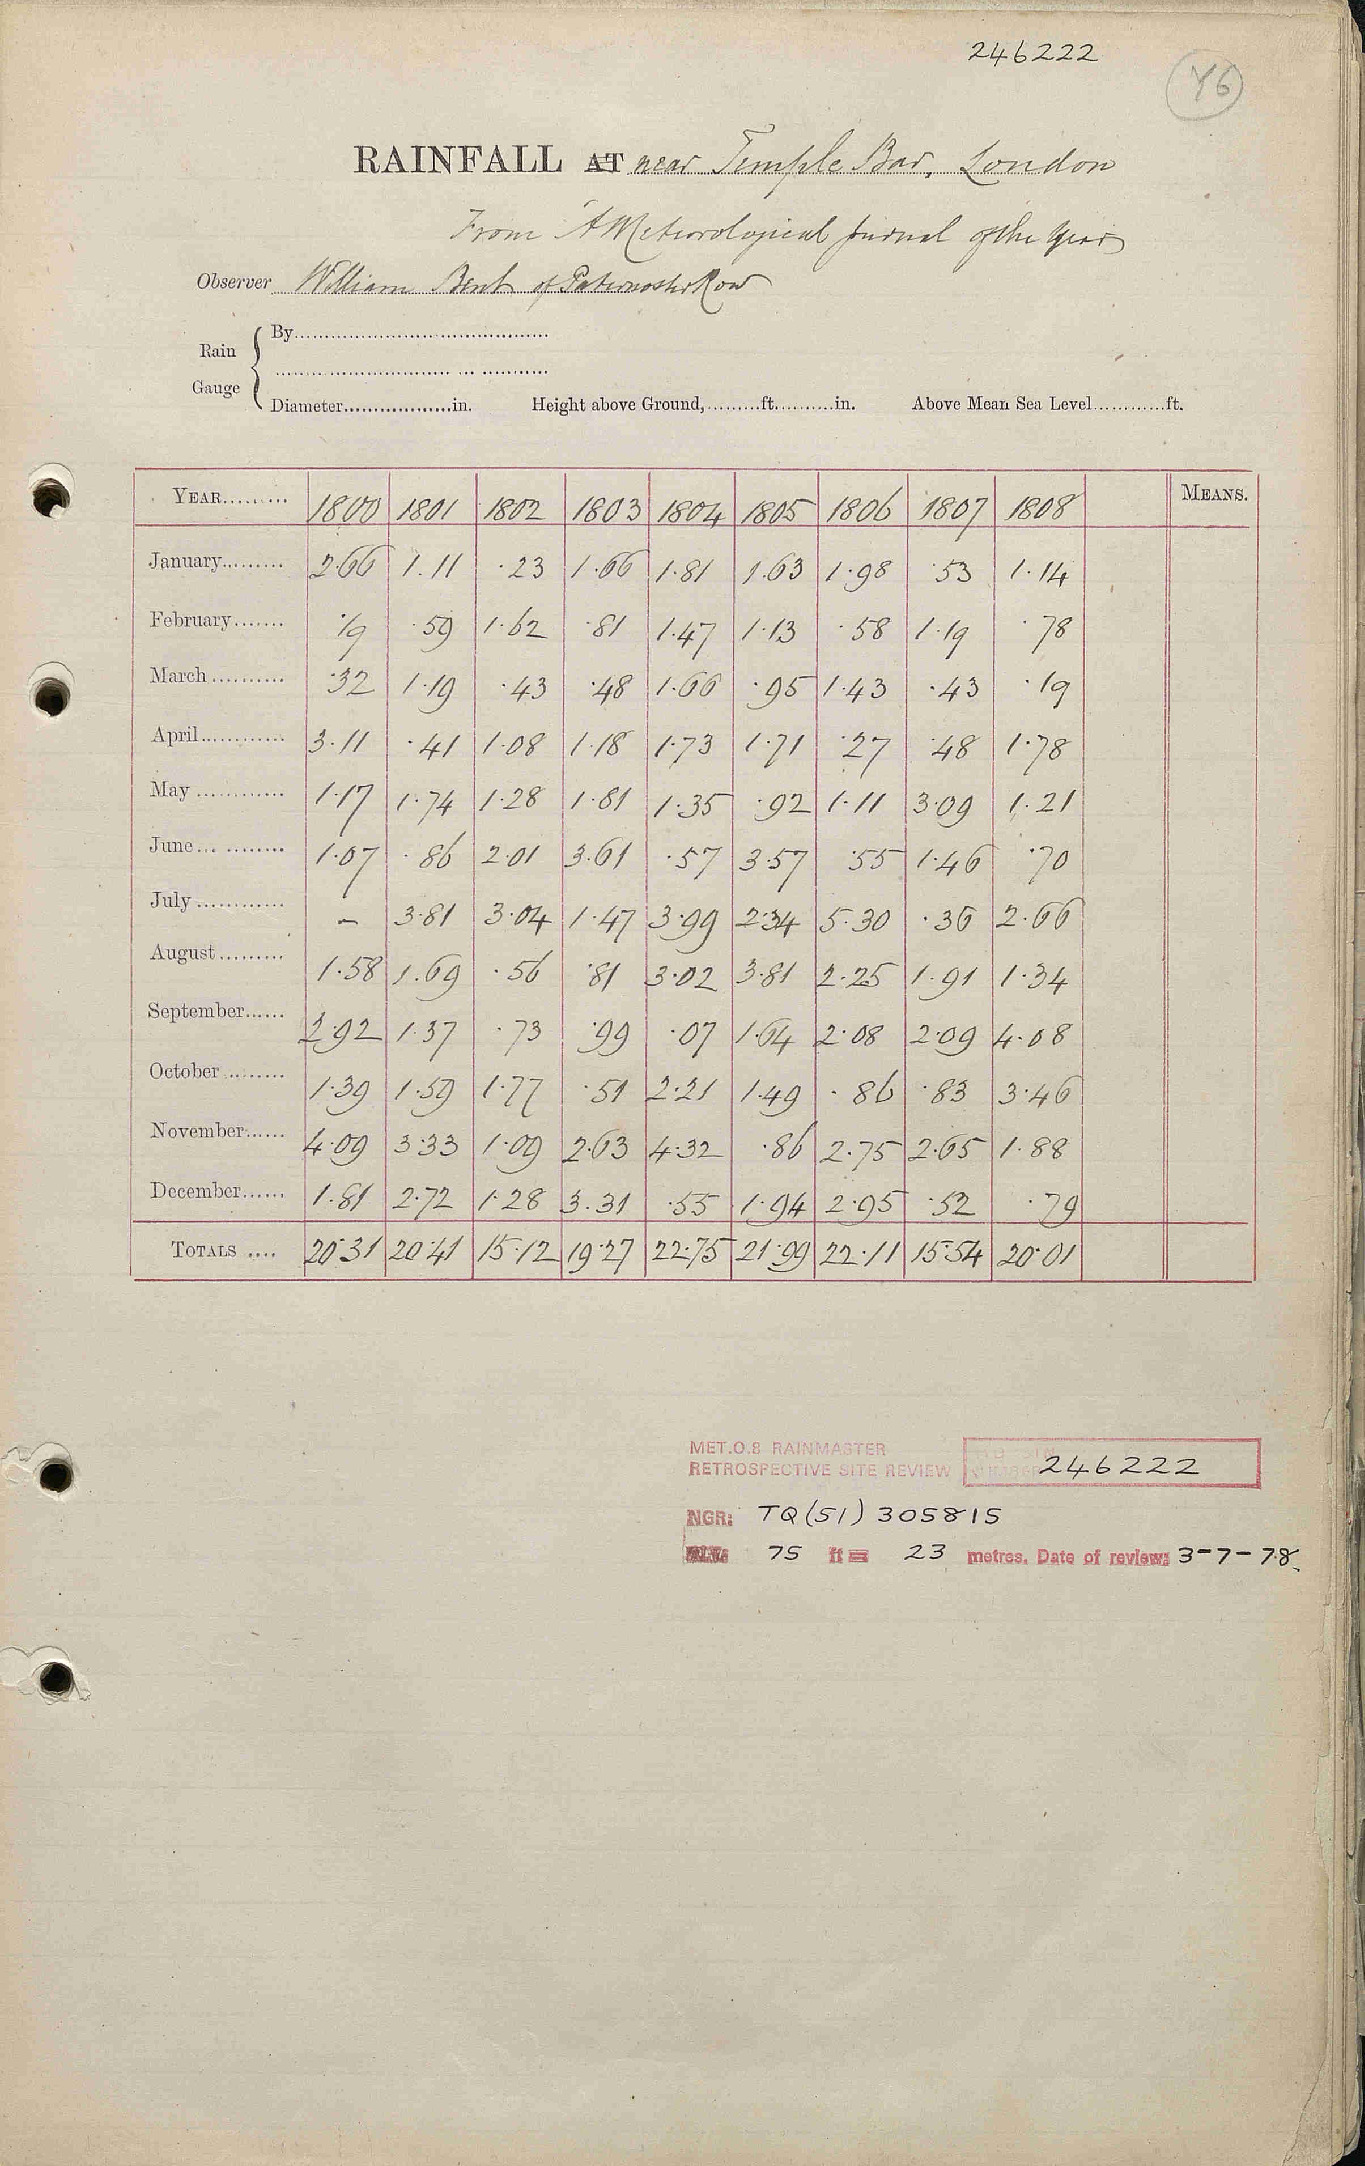 246222
46
RAINFALL AT near Temple Bar, London
From "A Meteorological Journal of the Year
Observer William Bent of Paternoster Row
Rain Gauge
By
Diameter in. Height above Ground, ft. in. Above Mean Sea Level ft.
YEAR 1800 1801 1802 1803 1804 1805 1806 1807 1808 MEANS.
January 2.66 1.11 .23 1.66 1.81 1.63 1.98 .53 1.14
February .19 .59 1.62 .81 1.47 1.13 .58 1.19 .78
March .32 1.19 .43 .48 1.66 .95 1.43 .43 .19
April 3.11 .41 1.08 1.18 1.73 1.71 .27 .48 1.78
May 1.17 1.74 1.28 1.81 1.35 .92 1.11 3.09 1.21
June 1.07 .86 2.01 3.61 .57 3.57 .55 1.46 .70
July – 3.81 3.04 1.47 3.99 2.34 5.30 .36 2.66
August 1.58 1.69 .56 .81 3.02 3.81 2.25 1.91 1.34
September 2.92 1.37 .73 .99 .07 1.64 2.08 2.09 4.08
October 1.39 1.59 1.77 .51 2.21 1.49 .86 .83 3.46
November 4.09 3.33 1.09 2.63 4.32 .86 2.75 2.65 1.88
December 1.81 2.72 1.28 3.31 .55 1.94 2.95 .52 .79
TOTALS 20.31 20.41 15.12 19.27 22.75 21.99 22.11 15.54 20.01
MET.O.8 RAINMASTER
RETROSPECTIVE SITE REVIEW 246222
NGR: TQ(51) 305815
75 ft = 23 metres. Date of review: 3-7-78.